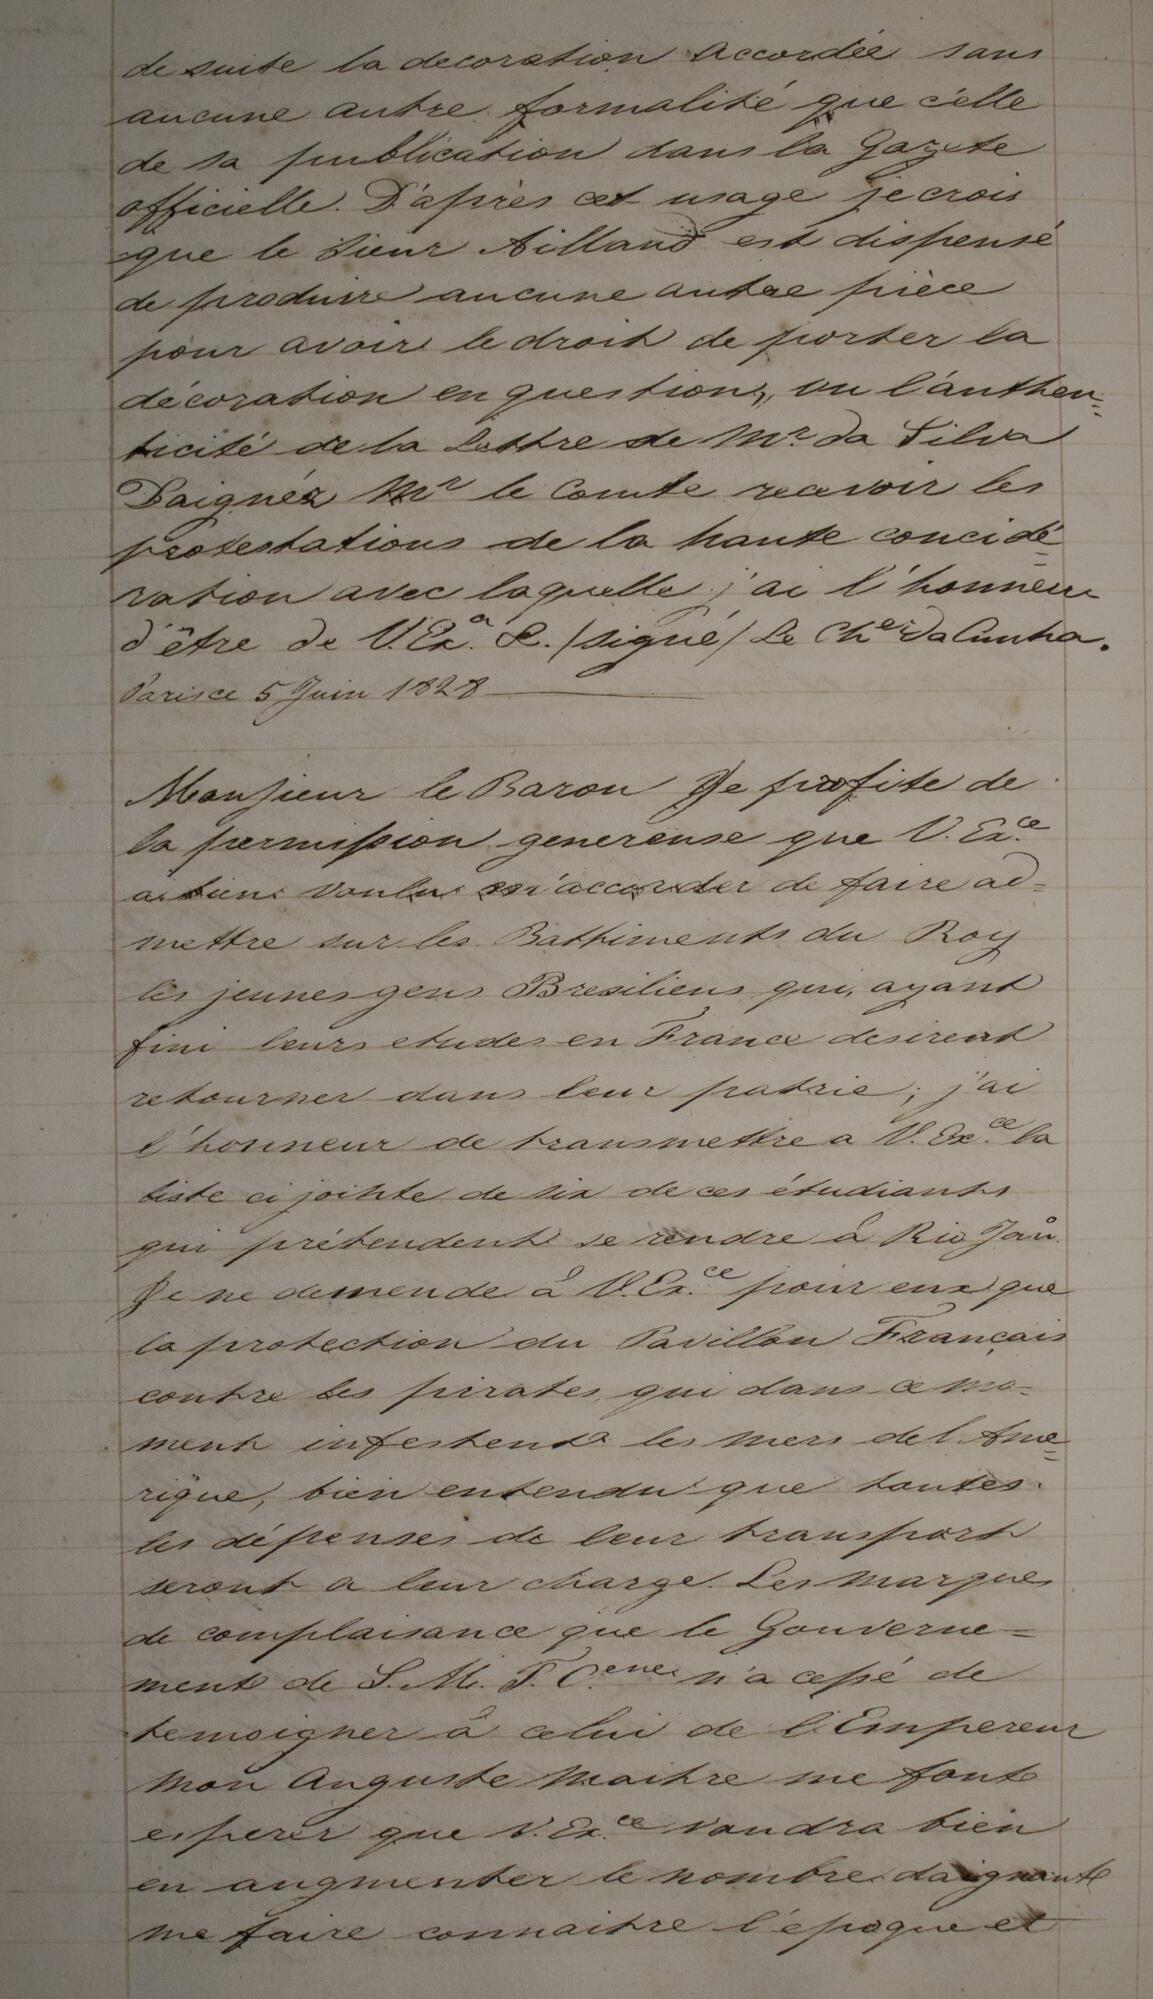 de suite la decoration accordée sans
aucune autre formalité que c'elle
de sa publication dans la Gazete
officielle. D'après cet usage je crois
que le Sieur Aillaud est dispensé
de produire aucune autre pièce
pour avoir le droit de porter la
décoration en question, vu l'authen=
ticité de la lettre de Mr. da Silva
Daignéz Mr le Comte recevoir les
protestations de la haute concidé=
ration avec laquelle j'ai l'honneur
d'être de V. Exa. &. /signé/ Le Cher da Cunha.
Paris ce 5 Juin 1828
Monsieur le Baron Je profite de
la permission genereuse que V. Exce
a bien voulu m'accorder de faire ad=
mettre sur les Bathiments du Roy
les jeunes gens Bresiliens qui, ayant
fini leurs etudes en France desirent
retourner dans leur patrie; j'ai
l'honneur de transmettre a V. Exce la
liste ci jointe de six de ces étudiants
qui prétendent se rendre à Rio Jan.
Je ne demende à V. Exce pour eux que
la protection du Pavillon Français
contre les pirates, qui dans ce mo=
ment infestent les mers de l'Ame=
rique, bien entendu que toutes
les dépenses de leur transport
seront a leur charge. Les marques
de complaisance que le Gouverne=
ment de S. M. T. C.enne n'a cessé de
temoigner à celui de l'Empereur
mon Auguste Maitre me font
esperer que V. Exce voudra bien
en augmenter le nombre daignant
me faire connaitre l'epoque et